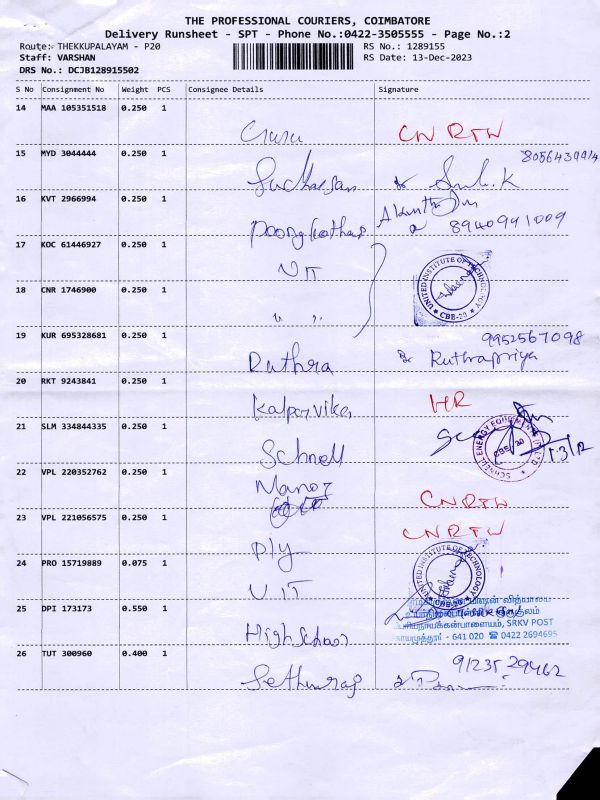 THE PROFESSIONAL COURIERS, COIMBATORE
Delivery Runsheet - SPT - Phone No.:0422-3505555 - Page No.:2
Route: THEKKUPALAYAM - P20 RS No.: 1289155
Staff: VARSHAN RS Date: 13-Dec-2023
DRS No.: DCJB128915502
S No Consignment No Weight PCS Consignee Details Signature
14 MAA 105351518 0.250 1
Guru CNRTN
15 MYD 3044444 0.250 1
Sudharsan
16 KVT 2966994 0.250 1
8940941009
17 KOC 61446927 0.250 1
UIT UNITED INSTITUTE OF TECHNOLOGY CBE-20
18 CNR 1746900 0.250 1
" "
19 KUR 695328681 0.250 1 9952567098
Ruthra Ruthrapriya
20 RKT 9243841 0.250 1
HR
21 SLM 334844335 0.250 1
Schnell SCHNELL ENERGY EQUIPMENTS (P) LTD CBE-20
22 VPL 220352762 0.250 1
Manoj CNRTN
23 VPL 221056575 0.250 1 CNRTN
Ply
24 PRO 15719889 0.075 1
UIT UNITED INSTITUTE OF TECHNOLOGY CBE-20
25 DPI 173173 0.550 1
SRKV POST
High School - 641 020 ☎ 0422 2694695
26 TUT 300960 0.400 1 9123529462
Sethuraj